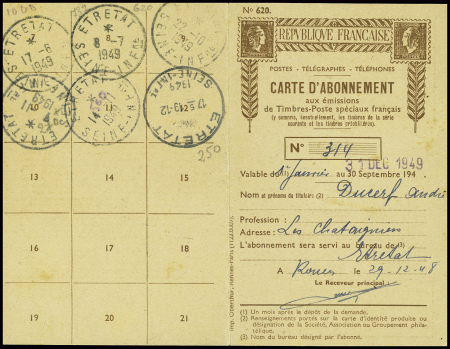 No 620.
RÉPUBLIQUE FRANÇAISE
POSTES - TÉLÉGRAPHES - TÉLÉPHONES
CARTE D'ABONNEMENT
aux émissions
de Timbres-Poste spéciaux français
(y compris, éventuellement, les timbres de la série
courante et les timbres préoblitérés).
No 314
31 DEC 1949
Valable du 1er Janvier au 30 Septembre 194
Nom et prénoms du titulaire (2) Ducerf André
Profession :
Adresse : Les Chataigniers
L'abonnement sera servi au bureau de (3)
Etretat
A Rouen le 29-12-48
Le Receveur principal,
(1) Un mois après le dépôt de la demande.
(2) Renseignements portés sur la carte d'identité produite ou
désignation de la Société, Association ou Groupement phila-
télique.
(3) Bureau désigné par l'abonné.
ETRETAT
1949
SEINE-INFRE
ETRETAT
8-7
1949
22-10
1949
ETRETAT
1949
ETRETAT
SEINE-INFRE
ETRETAT
SEINE-INFRE
1949
250
13
14
15
16
17
18
19
20
21